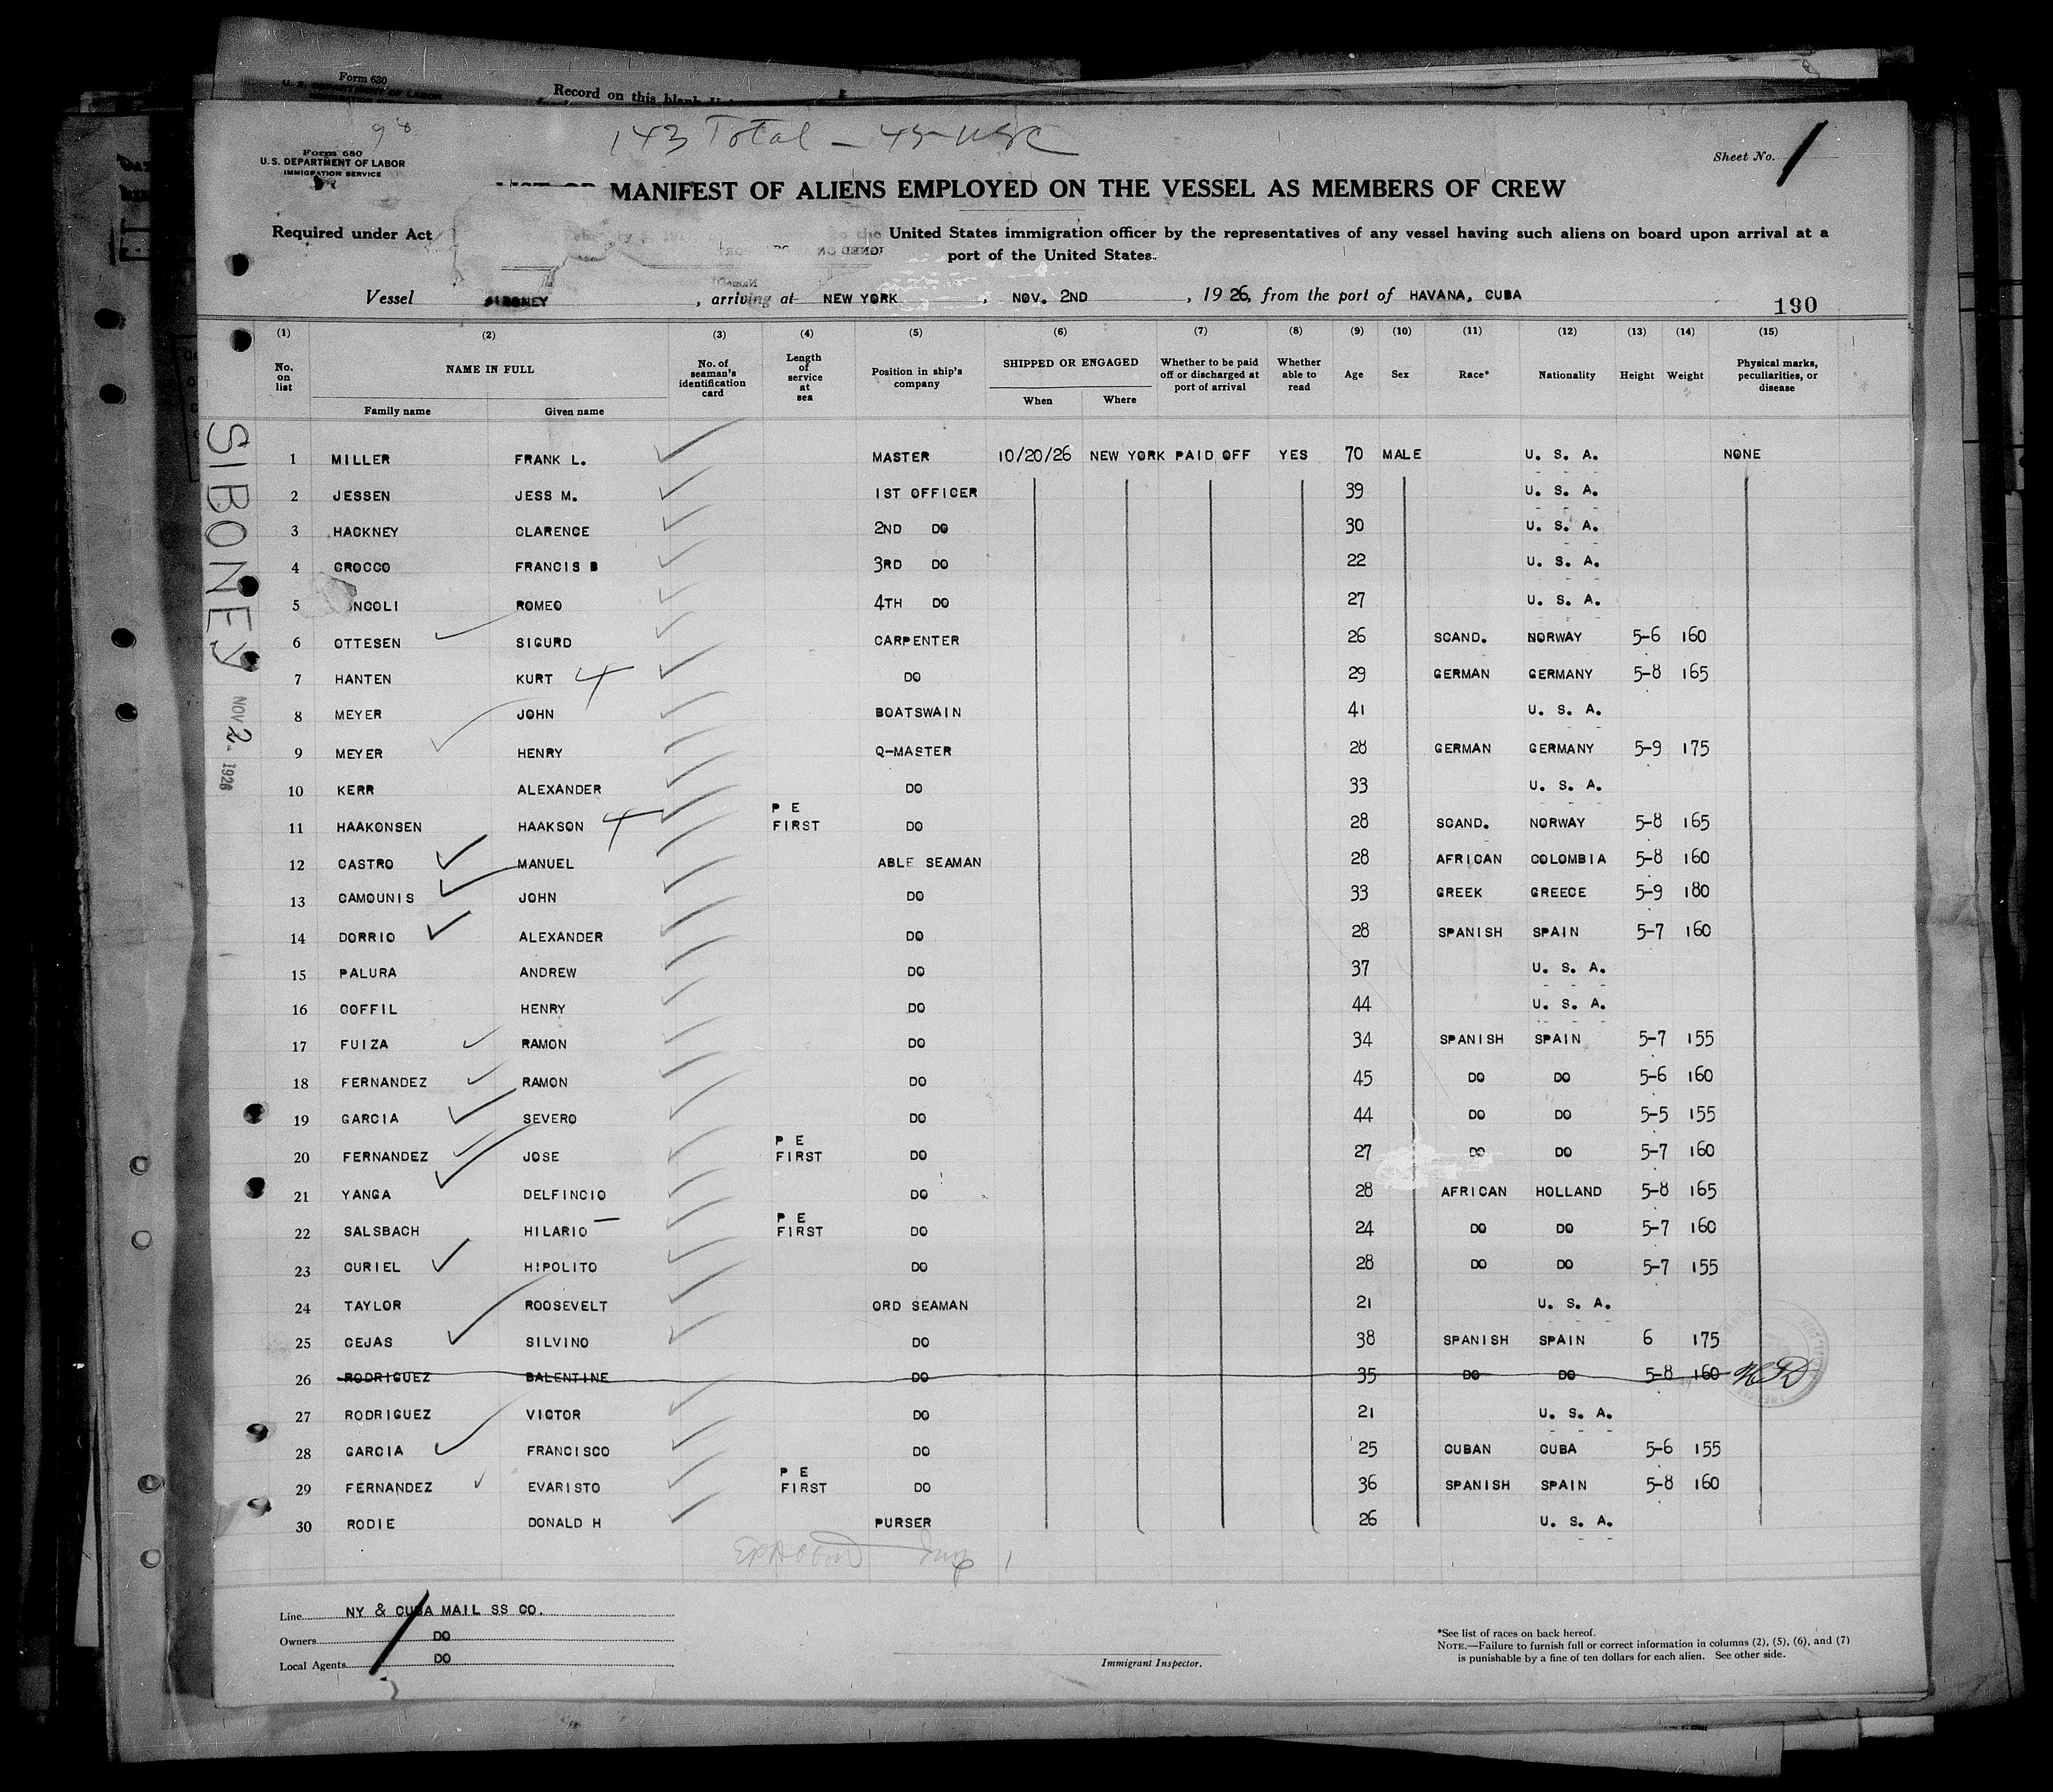 Form 630
Record on this blank
143 Total - 45 USC
Form 680
U.S. DEPARTMENT OF LABOR
IMMIGRATION SERVICE
Sheet No. 1
MANIFEST OF ALIENS EMPLOYED ON THE VESSEL AS MEMBERS OF CREW
Required under Act United States immigration officer by the representatives of any vessel having such aliens on board upon arrival at a
port of the United States.
Vessel SIBONEY, arriving at NEW YORK, NOV. 2ND, 1926, from the port of HAVANA, CUBA
190
(1) (2) (3) (4) (5) (6) (7) (8) (9) (10) (11) (12) (13) (14) (15)
No. on list NAME IN FULL No. of seaman's identification card Length of service at sea Position in ship's company SHIPPED OR ENGAGED Whether to be paid off or discharged at port of arrival Whether able to read Age Sex Race* Nationality Height Weight Physical marks, peculiarities, or disease
Family name Given name When Where
SIBONEY
NOV 2 - 1926
1 MILLER FRANK L. MASTER 10/20/26 NEW YORK PAID OFF YES 70 MALE U. S. A. NONE
2 JESSEN JESS M. 1ST OFFICER 39 U. S. A.
3 HACKNEY CLARENCE 2ND DO 30 U. S. A.
4 CROCCO FRANCIS B 3RD DO 22 U. S. A.
5 NCOLI ROMEO 4TH DO 27 U. S. A.
6 OTTESEN SIGURD CARPENTER 26 SCAND. NORWAY 5-6 160
7 HANTEN KURT DO 29 GERMAN GERMANY 5-8 165
8 MEYER JOHN BOATSWAIN 41 U. S. A.
9 MEYER HENRY Q-MASTER 28 GERMAN GERMANY 5-9 175
10 KERR ALEXANDER DO 33 U. S. A.
11 HAAKONSEN HAAKSON P E FIRST DO 28 SCAND. NORWAY 5-8 165
12 CASTRO MANUEL ABLE SEAMAN 28 AFRICAN COLOMBIA 5-8 160
13 CAMOUNIS JOHN DO 33 GREEK GREECE 5-9 180
14 DORRIO ALEXANDER DO 28 SPANISH SPAIN 5-7 160
15 PALURA ANDREW DO 37 U. S. A.
16 COFFIL HENRY DO 44 U. S. A.
17 FUIZA RAMON DO 34 SPANISH SPAIN 5-7 155
18 FERNANDEZ RAMON DO 45 DO DO 5-6 160
19 GARCIA SEVERO DO 44 DO DO 5-5 155
20 FERNANDEZ JOSE P E FIRST DO 27 DO DO 5-7 160
21 YANGA DELFINCIO DO 28 AFRICAN HOLLAND 5-8 165
22 SALSBACH HILARIO P E FIRST DO 24 DO DO 5-7 160
23 CURIEL HIPOLITO DO 28 DO DO 5-7 155
24 TAYLOR ROOSEVELT ORD SEAMAN 21 U. S. A.
25 CEJAS SILVINO DO 38 SPANISH SPAIN 6 175
26 RODRIGUEZ BALENTINE DO 35 DO DO 5-8 160
27 RODRIGUEZ VICTOR DO 21 U. S. A.
28 GARCIA FRANCISCO DO 25 CUBAN CUBA 5-6 155
29 FERNANDEZ EVARISTO P E FIRST DO 36 SPANISH SPAIN 5-8 160
30 RODIE DONALD H PURSER 26 U. S. A.
Line NY & CUBA MAIL SS CO.
Owners DO
Local Agents DO
Immigrant Inspector.
*See list of races on back hereof.
NOTE.—Failure to furnish full or correct information in columns (2), (5), (6), and (7)
is punishable by a fine of ten dollars for each alien. See other side.